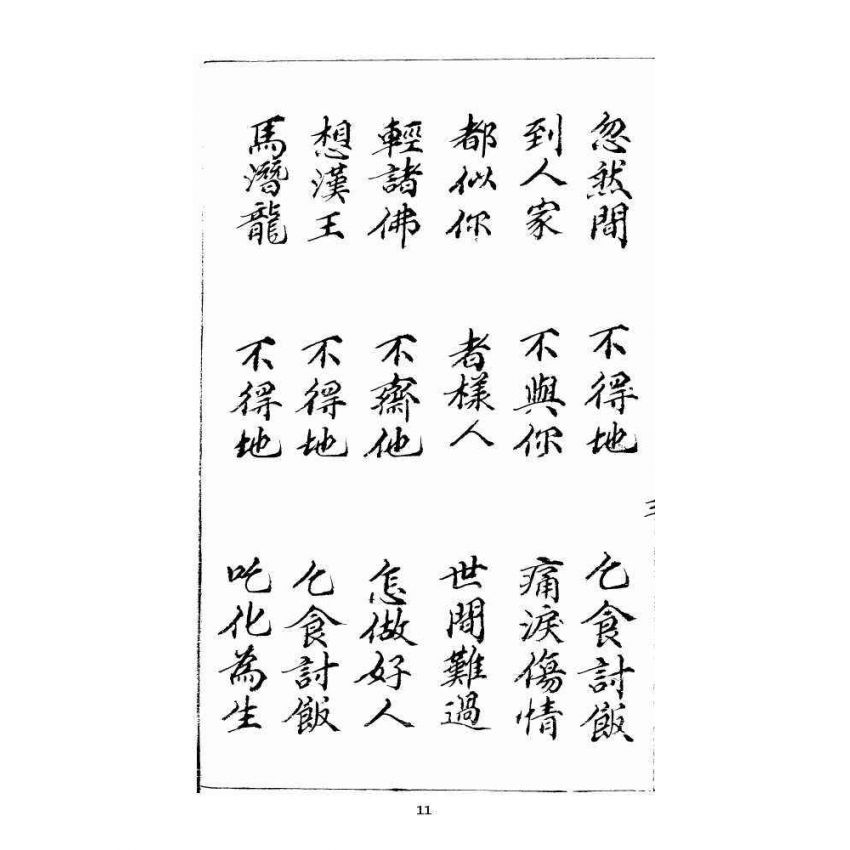 忽然間　不得地　乞食討飯
到人家　不與你　痛淚傷情
都似你　者樣人　世間難過
輕諸佛　不齋他　怎做好人
想漢王　不得地　乞食討飯
馬潛龍　不得地　吃化為生
三
11